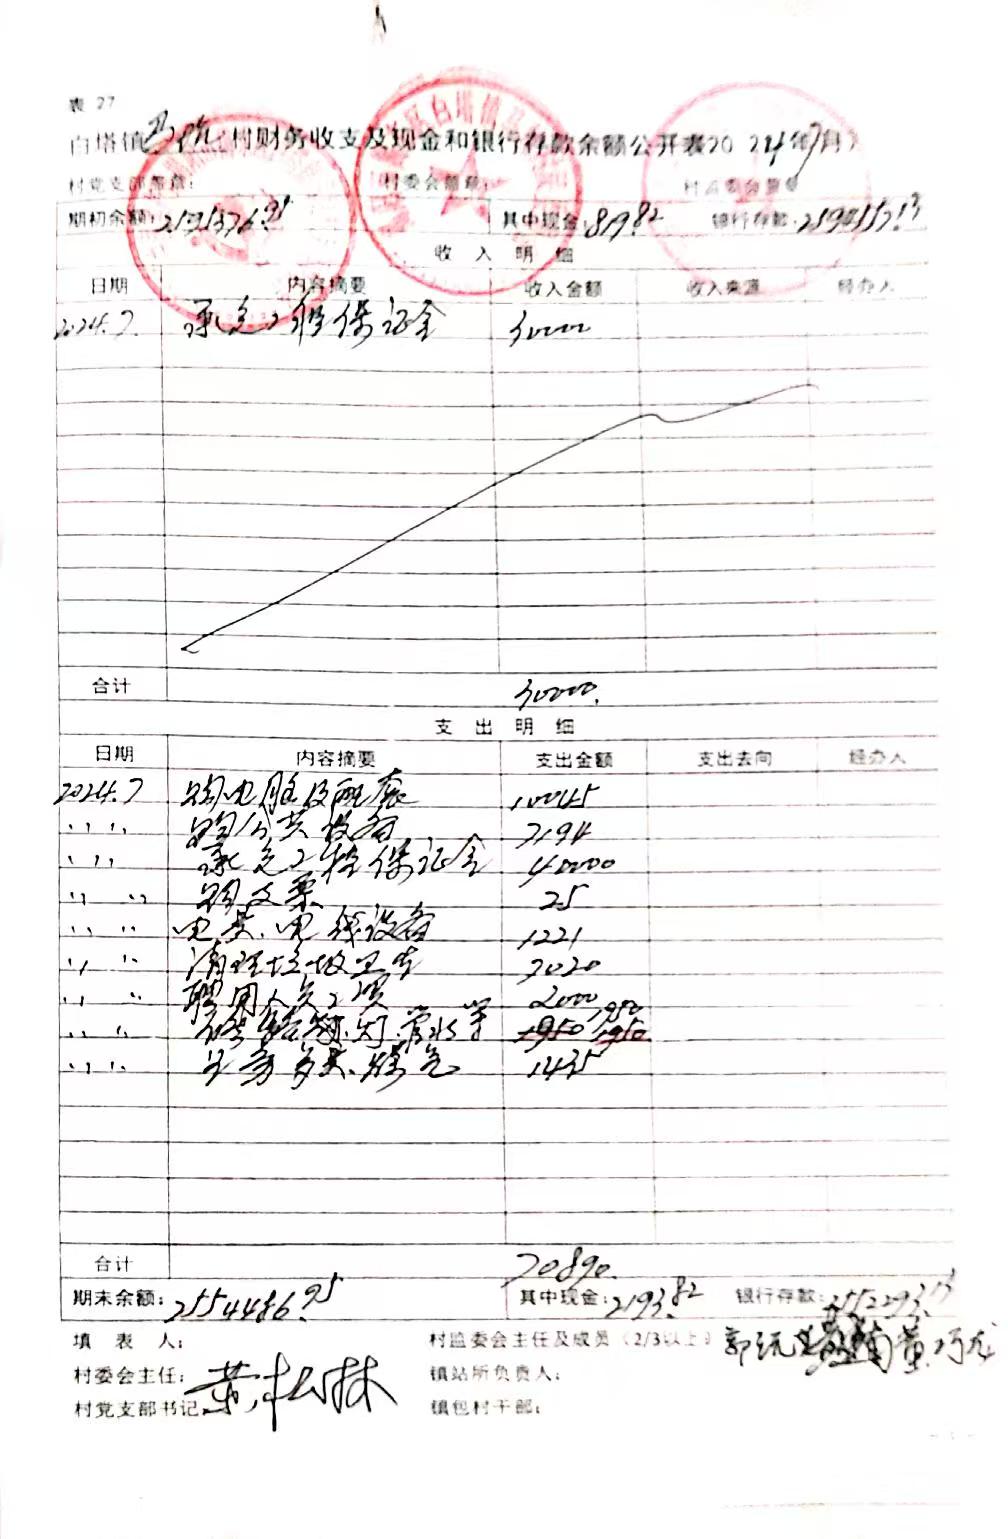 表 27
白塔镇 村财务收支及现金和银行存款余额公开表2024年7月
村党支部盖章： 村委会盖章： 村监委会盖章
期初余额： 其中现金：819.82 银行存款：
收 入 明 细
日期 内容摘要 收入金额 收入来源 经办人
2024.7. 承包工程保证金 30000
合计 30000.
支 出 明 细
日期 内容摘要 支出金额 支出去向 经办人
2024.7 购电脑及配套 10045
〃 〃 购公共设备 7194
〃 〃 承包工程保证金 40000
〃 〃 购支票 25
〃 〃 电费、电线设备 1221
〃 〃 清理垃圾卫生 3020
〃 〃 聘用人员工资 2000
〃 〃 灯 水 等 1950 1950 1950
〃 〃 1435
合计 70890.
期末余额：2554486.95 其中现金：2193.82 银行存款：2552293.13
填 表 人： 村监委会主任及成员（2/3以上）
村委会主任： 镇站所负责人：
村党支部书记： 镇包村干部：